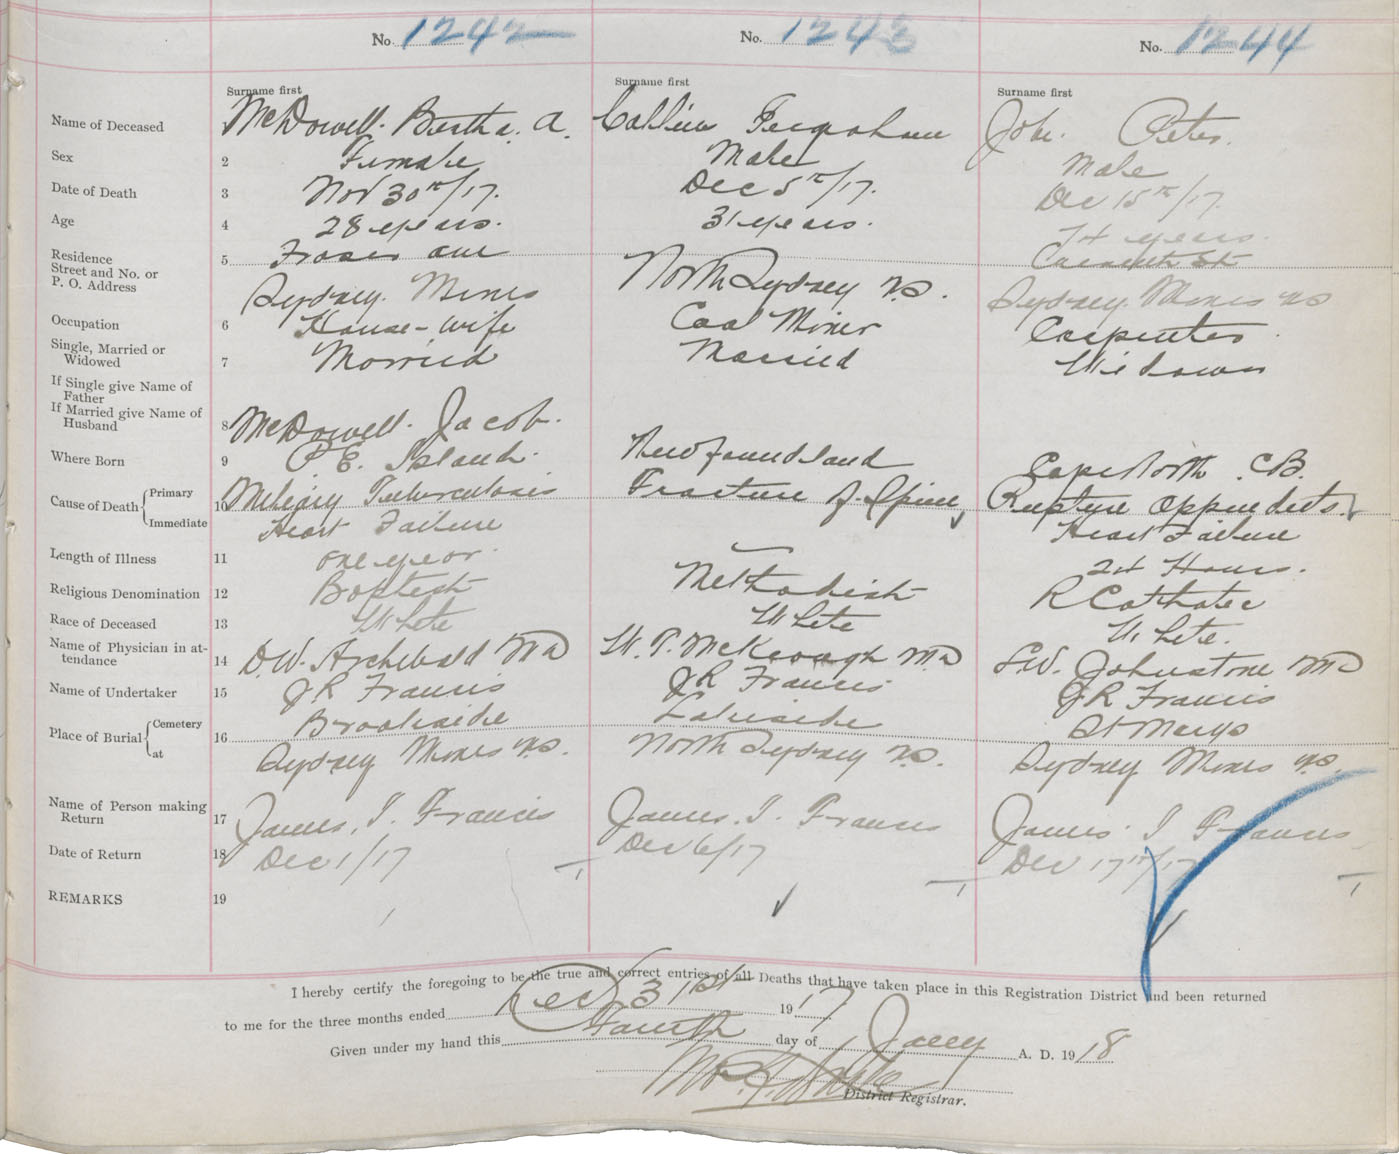 No. 1242
No. 1243
No. 1244
Surname first
Surname first
Surname first
Name of Deceased
McDowell. Bertha. A.
John. Peter.
Sex 2
Female
Male
Male
Date of Death 3
Nov 30th/17.
Dec 5th/17.
Dec 15th/17.
Age 4
28 years.
31 years.
74 years.
Residence
Street and No. or
P. O. Address
5
Fraser ave
St
Sydney. Mines
North Sydney N.S.
Sydney. Mines NS
Occupation 6
House-wife
Coal Miner
Carpenter
Single, Married or
Widowed 7
Married
Married
Widower
If Single give Name of
Father
If Married give Name of
Husband
8
McDowell. Jacob.
Where Born 9
P. E. Island.
Newfoundland
Cape North. CB.
Cause of Death { Primary
Immediate 10
Tuberculosis
Fracture of Spine
Rupture
Heart Failure
Heart Failure
Length of Illness 11
one year.
24 Hours.
Religious Denomination 12
Baptist
Methodist
R Catholic
Race of Deceased 13
White
White
White.
Name of Physician in at-
tendance 14
D.W. Archibald MD
W. P. McKeough MD
L.W. Johnstone MD
Name of Undertaker 15
J R Francis
J R Francis
J R Francis
Place of Burial { Cemetery
at 16
Brookside
Lakeside
St Marys
Sydney Mines N.S.
North Sydney N.S.
Sydney Mines N.S.
Name of Person making
Return 17
James. I. Francis
James. I. Francis
James. I Francis
Date of Return 18
Dec 1/17
Dec 6/17
Dec 17th/17
REMARKS 19
I hereby certify the foregoing to be the true and correct entries of all Deaths that have taken place in this Registration District and been returned
to me for the three months ended Dec 31st 1917
Given under my hand this Fourth day of Jany A. D. 1918
District Registrar.